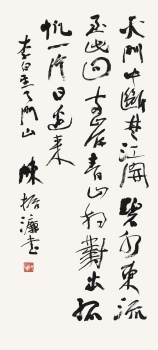 天門中斷楚江開碧水東流
至此回兩岸青山相對出孤
帆一片日邊來
李白望天門山 陳振濂書